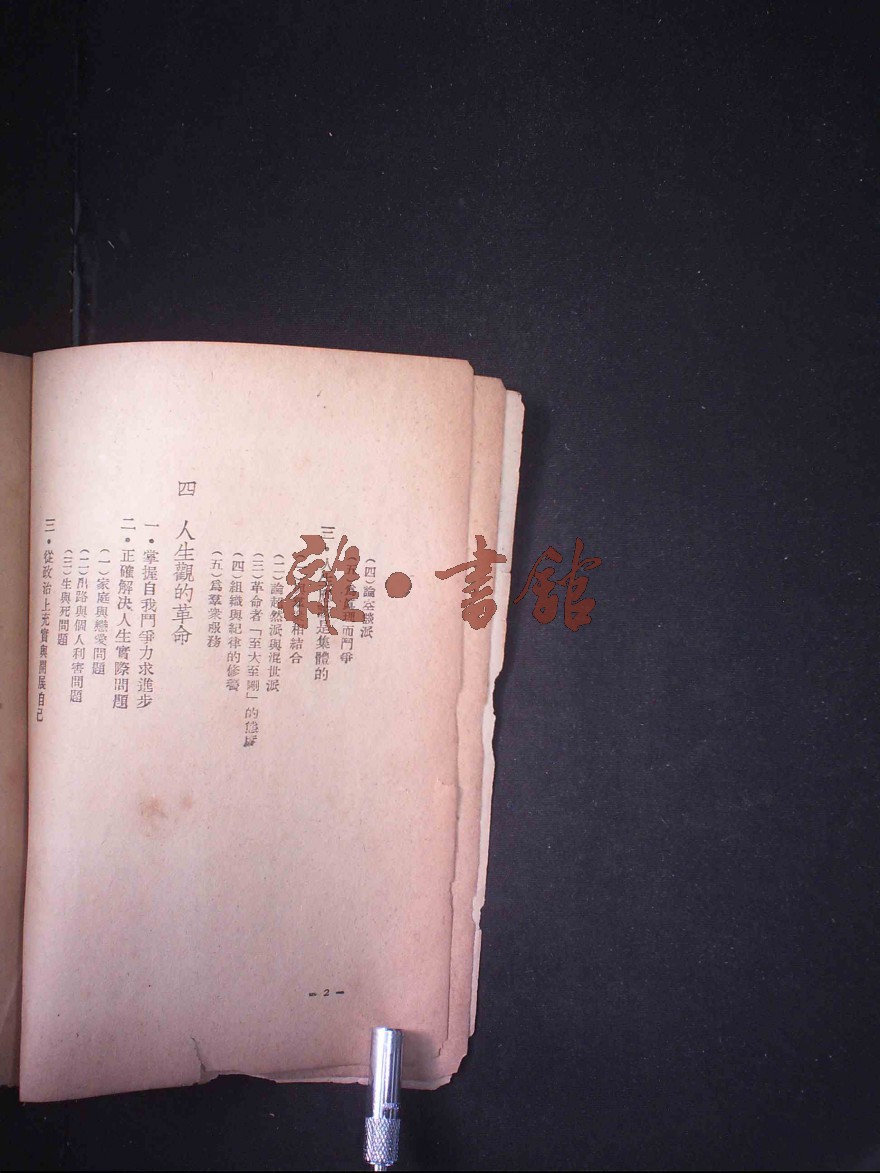 (四)論空談派
(五)爲真理而鬥爭
三 人生 是集體的
相結合
(二)論超然派與混世派
(三)革命者「至大至剛」的修養
(四)組織與紀律的修養
(五)爲羣衆服務
四 人生觀的革命
一•掌握自我鬥爭力求進步
二•正確解决人生實際問題
(一)家庭與戀愛問題
(二)出路與個人利害問題
(三)生與死問題
三•從政治上充實與開展自己
- 2 -
雜•書館